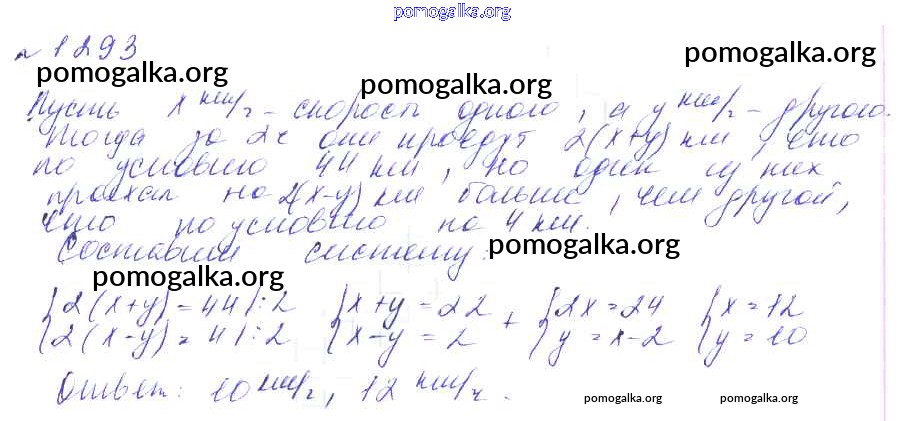 pomogalka.org
№ 1293
pomogalka.org
pomogalka.org
pomogalka.org
Пусть x км/ч - скорость одного, а y км/ч - другого.
Тогда за 2ч они проедут 2(x+y) км, что
по условию 44 км, но один из них
проехал на 2(x-y) км больше, чем другой,
что по условию на 4 км.
pomogalka.org
pomogalka.org
Составим систему:
pomogalka.org
{2(x+y)=44|:2 {x+y=22 {2x=24 {x=12
{2(x-y)=4|:2 {x-y=2 + {y=x-2 {y=10
Ответ: 10 км/ч, 12 км/ч.
pomogalka.org
pomogalka.org